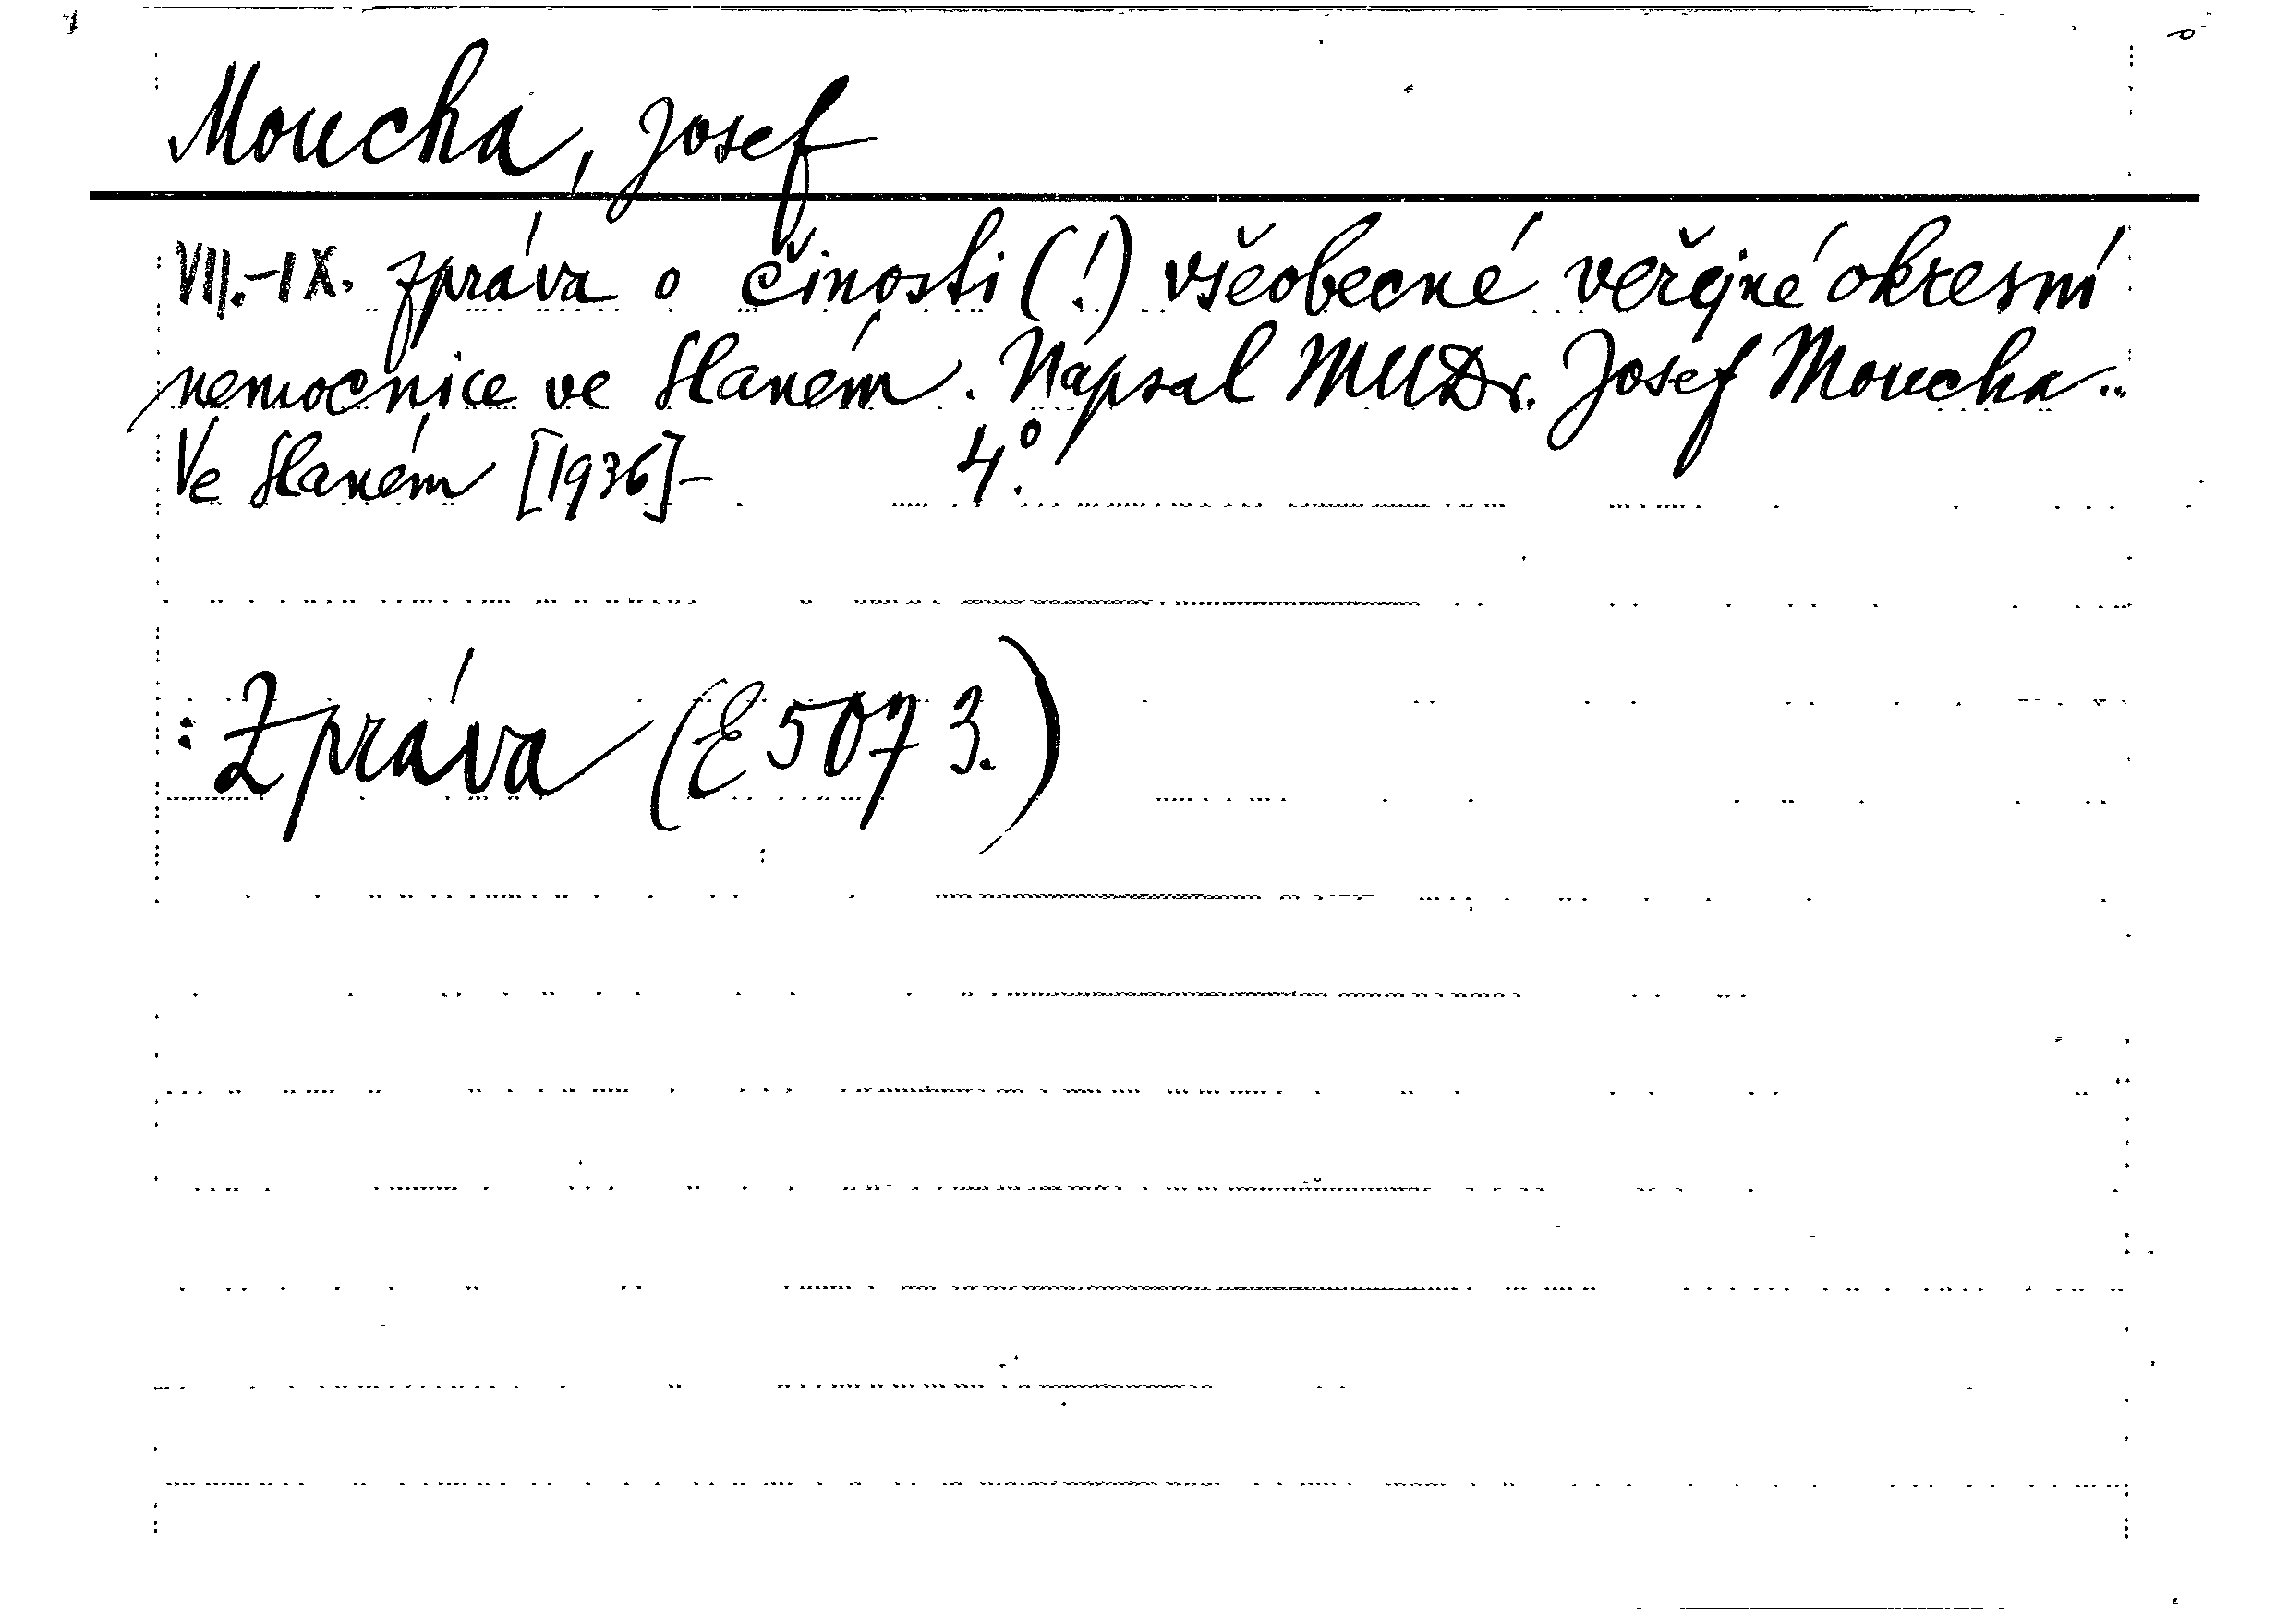 Moucha, Josef
VII.-IX. zpráva o činosti (!) všeobecné veřejné okresní
nemocnice ve Slaném. Napsal MUDr. Josef Moucha..
Ve Slaném [1936]- 4°.
: Zpráva (E 5073.)